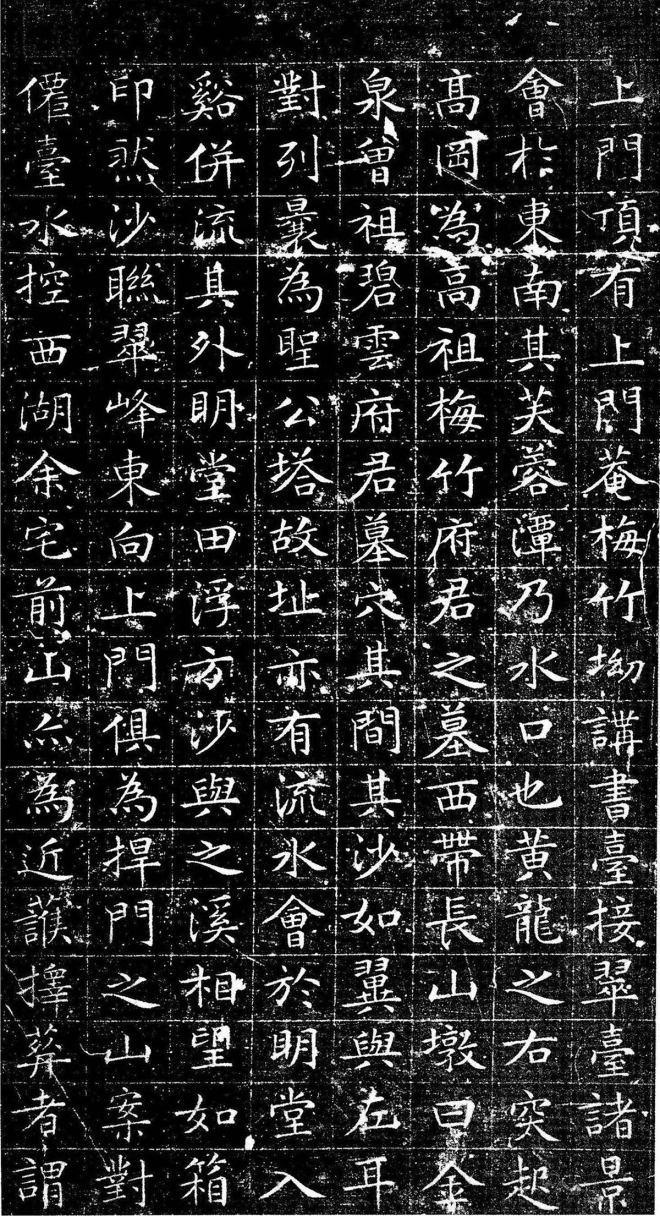 上門頂有上門菴梅竹坳講書臺接翠臺諸景
會於東南其芙蓉潭乃水口也黄龍之右突起
高岡為高祖梅竹府君之墓西帶長山墩曰金
泉曾祖碧雲府君墓穴其間其沙如翼與左耳
對列曩為聖公塔故址亦有流水會於明堂入
谿併流其外明堂田浮方沙與之溪相望如箱
印然沙聯翠峰東向上門俱為捍門之山案對
僊臺水控西湖余宅前山亦為近護擇葬者謂